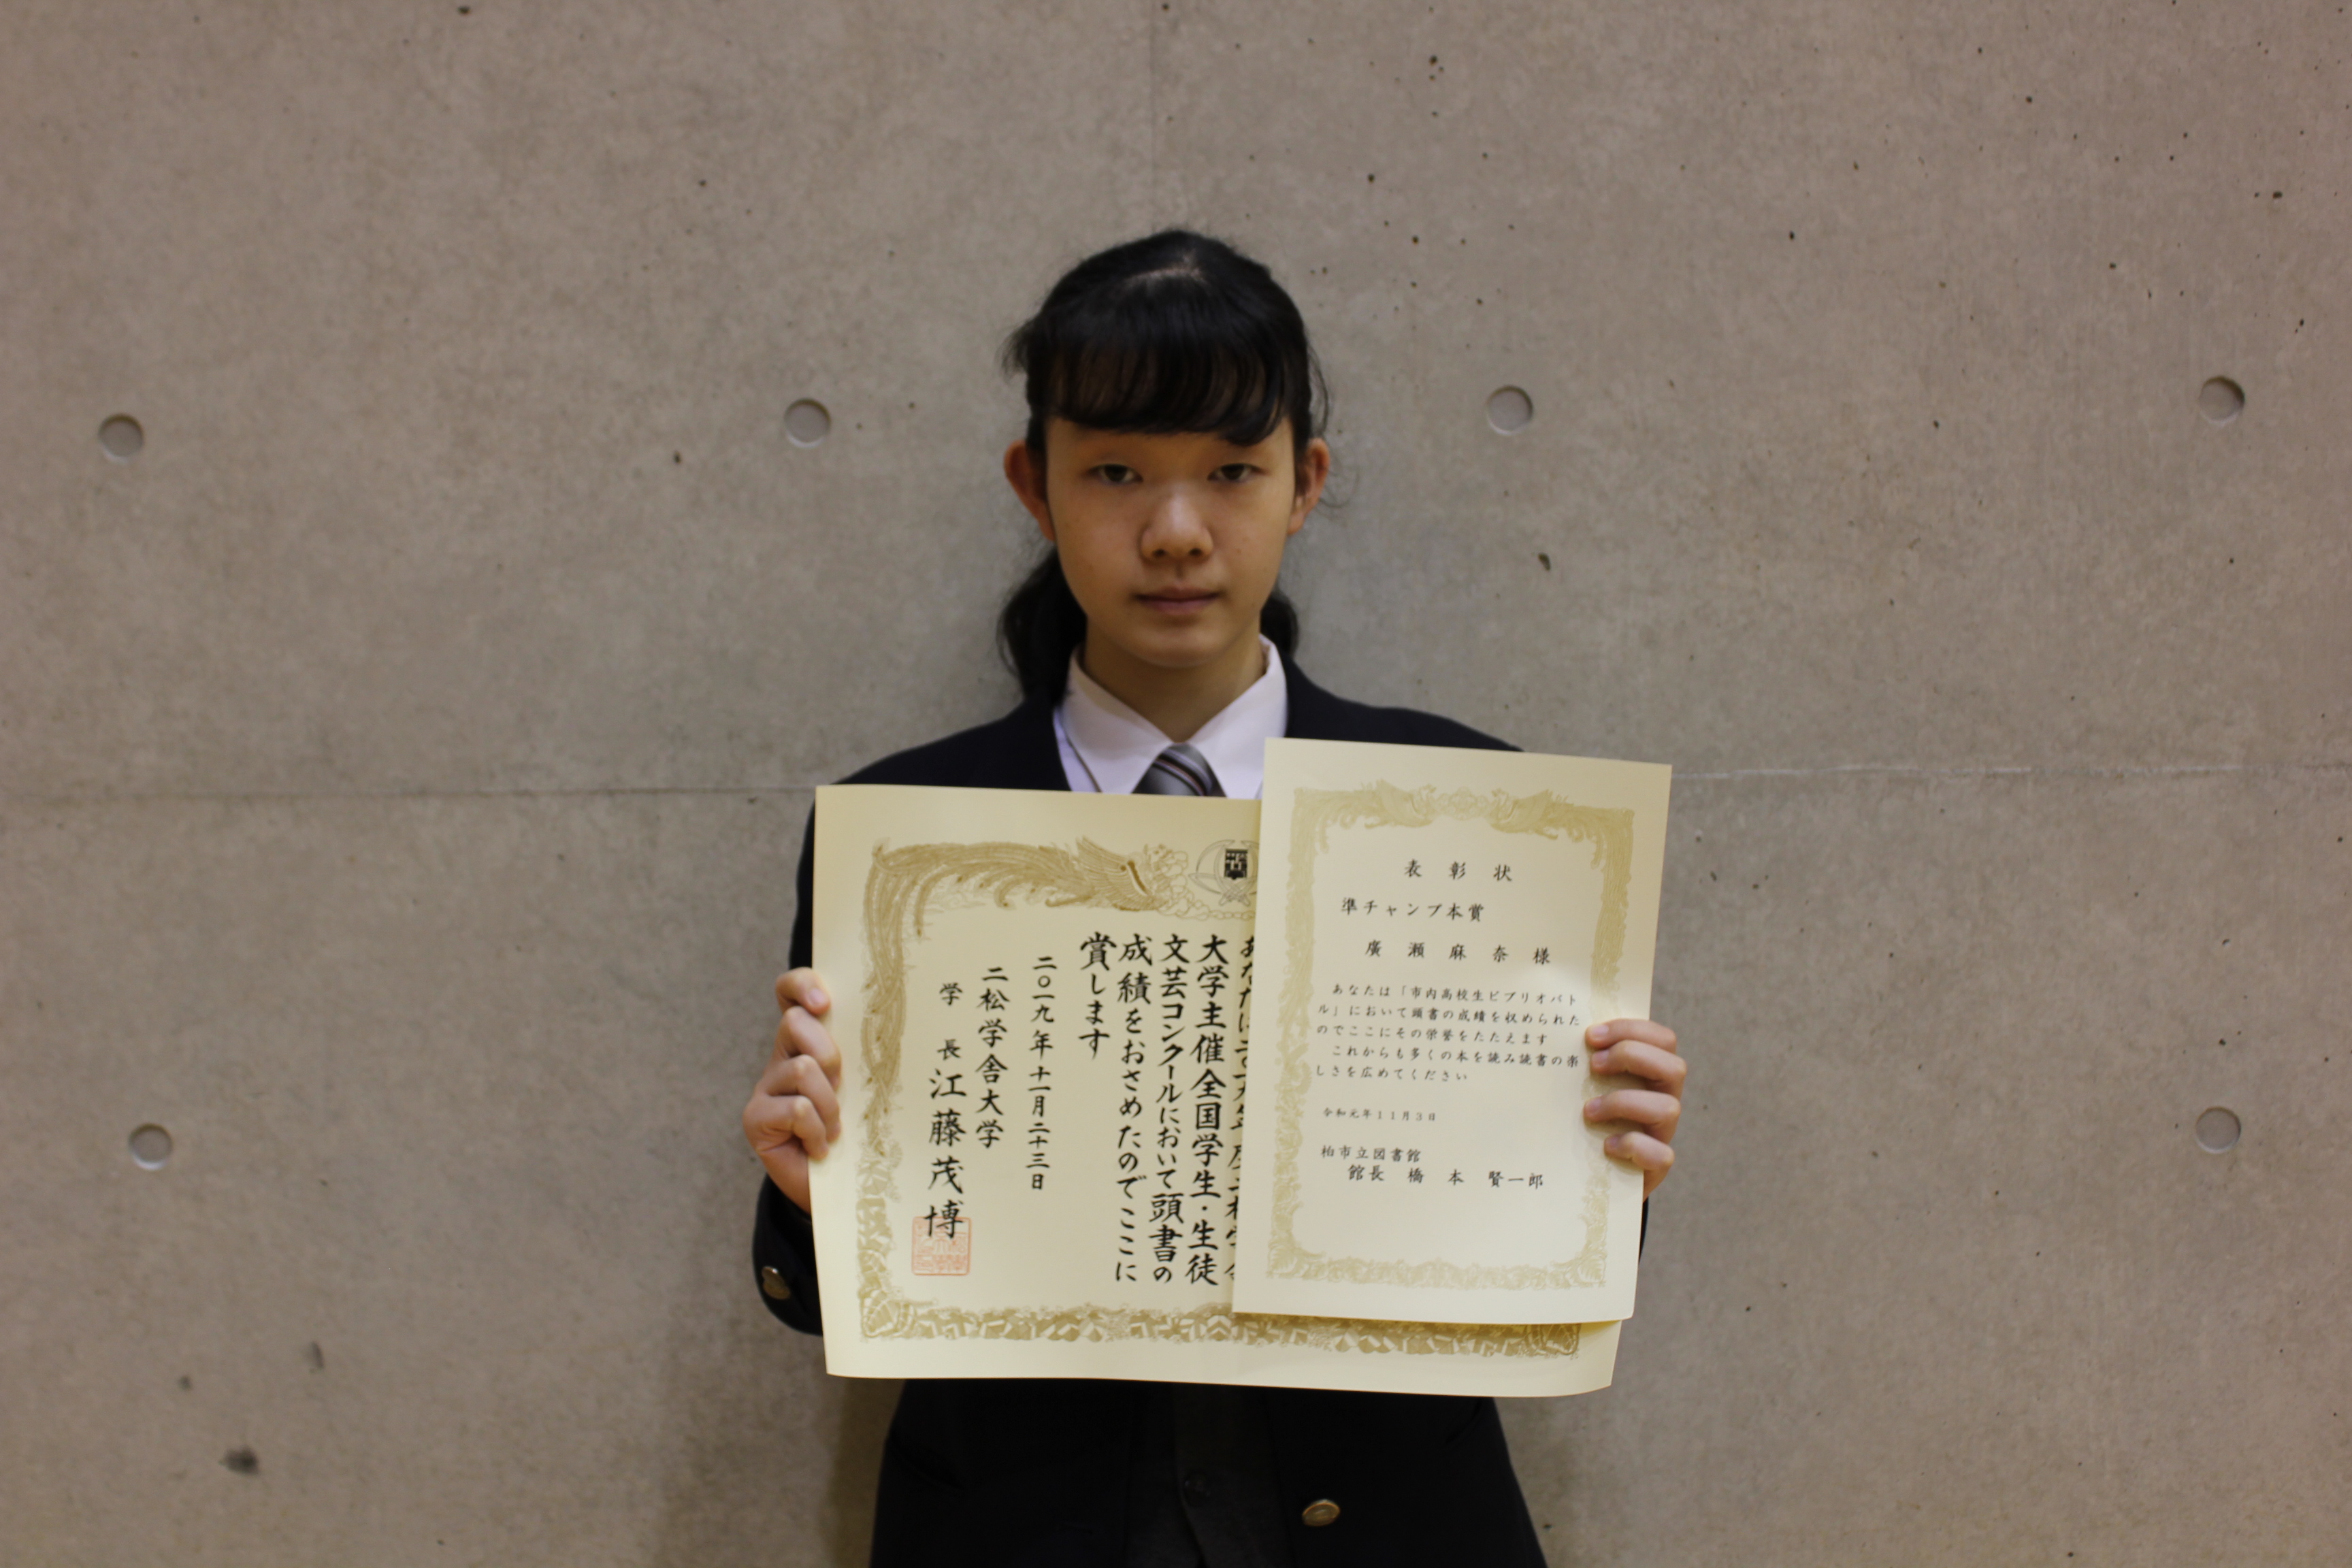 表彰状
準チャンプ本賞
廣瀬麻奈様
あなたは「市内高校生ビブリオバト
ル」において頭書の成績を収められた
のでここにその栄誉をたたえます
これからも多くの本を読み読書の楽
しさを広めてください
令和元年11月3日
柏市立図書館
館長 橋本 賢一郎
大学主催全国学生・生徒
文芸コンクールにおいて頭書の
成績をおさめたのでここに
賞します
二〇一九年十一月二十三日
二松学舎大学
学長 江藤茂博